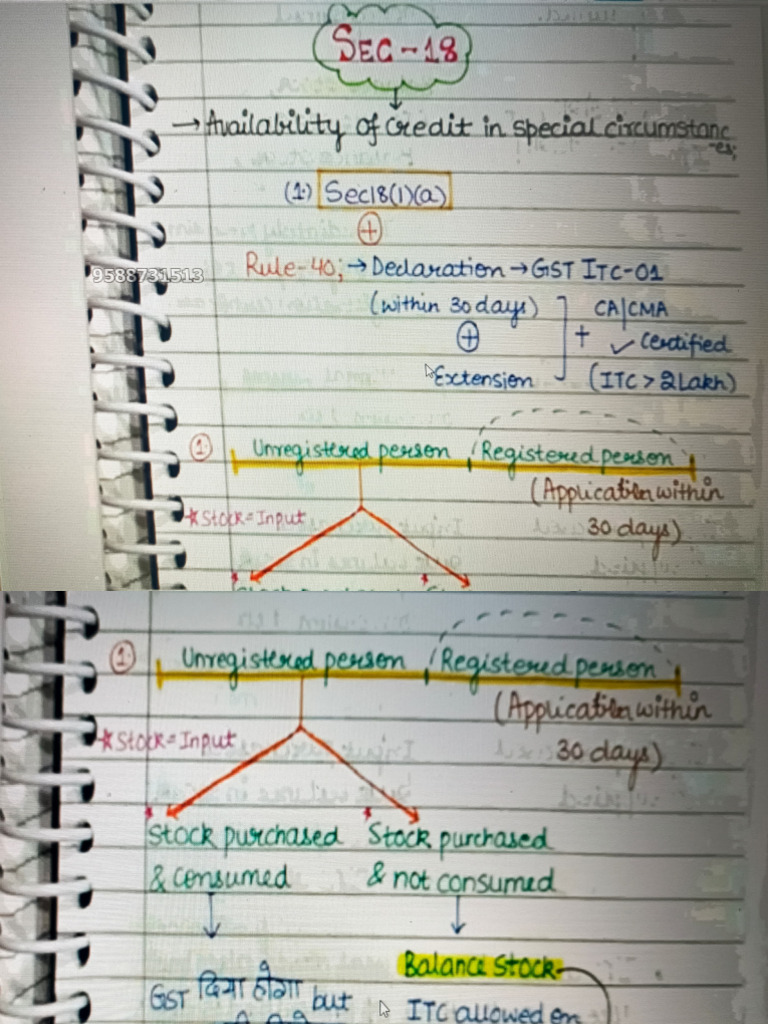 SEC-18
→ Availability of credit in special circumstanc
es;
(1.) Sec18(1)(a)
+
Rule-40; → Declaration → GST ITC-01
9588731513
(within 30 days) CA/CMA
+ + ✓ Certified
Extension (ITC > 2 Lakh)
1. Unregistered person Registered person
(Application within
★ Stock = Input 30 days)
1. Unregistered person Registered person
(Application within
★ Stock = Input 30 days)
★ Stock purchased ★ Stock purchased
& consumed & not consumed
Balance Stock
GST दिया होगा but ITC allowed on